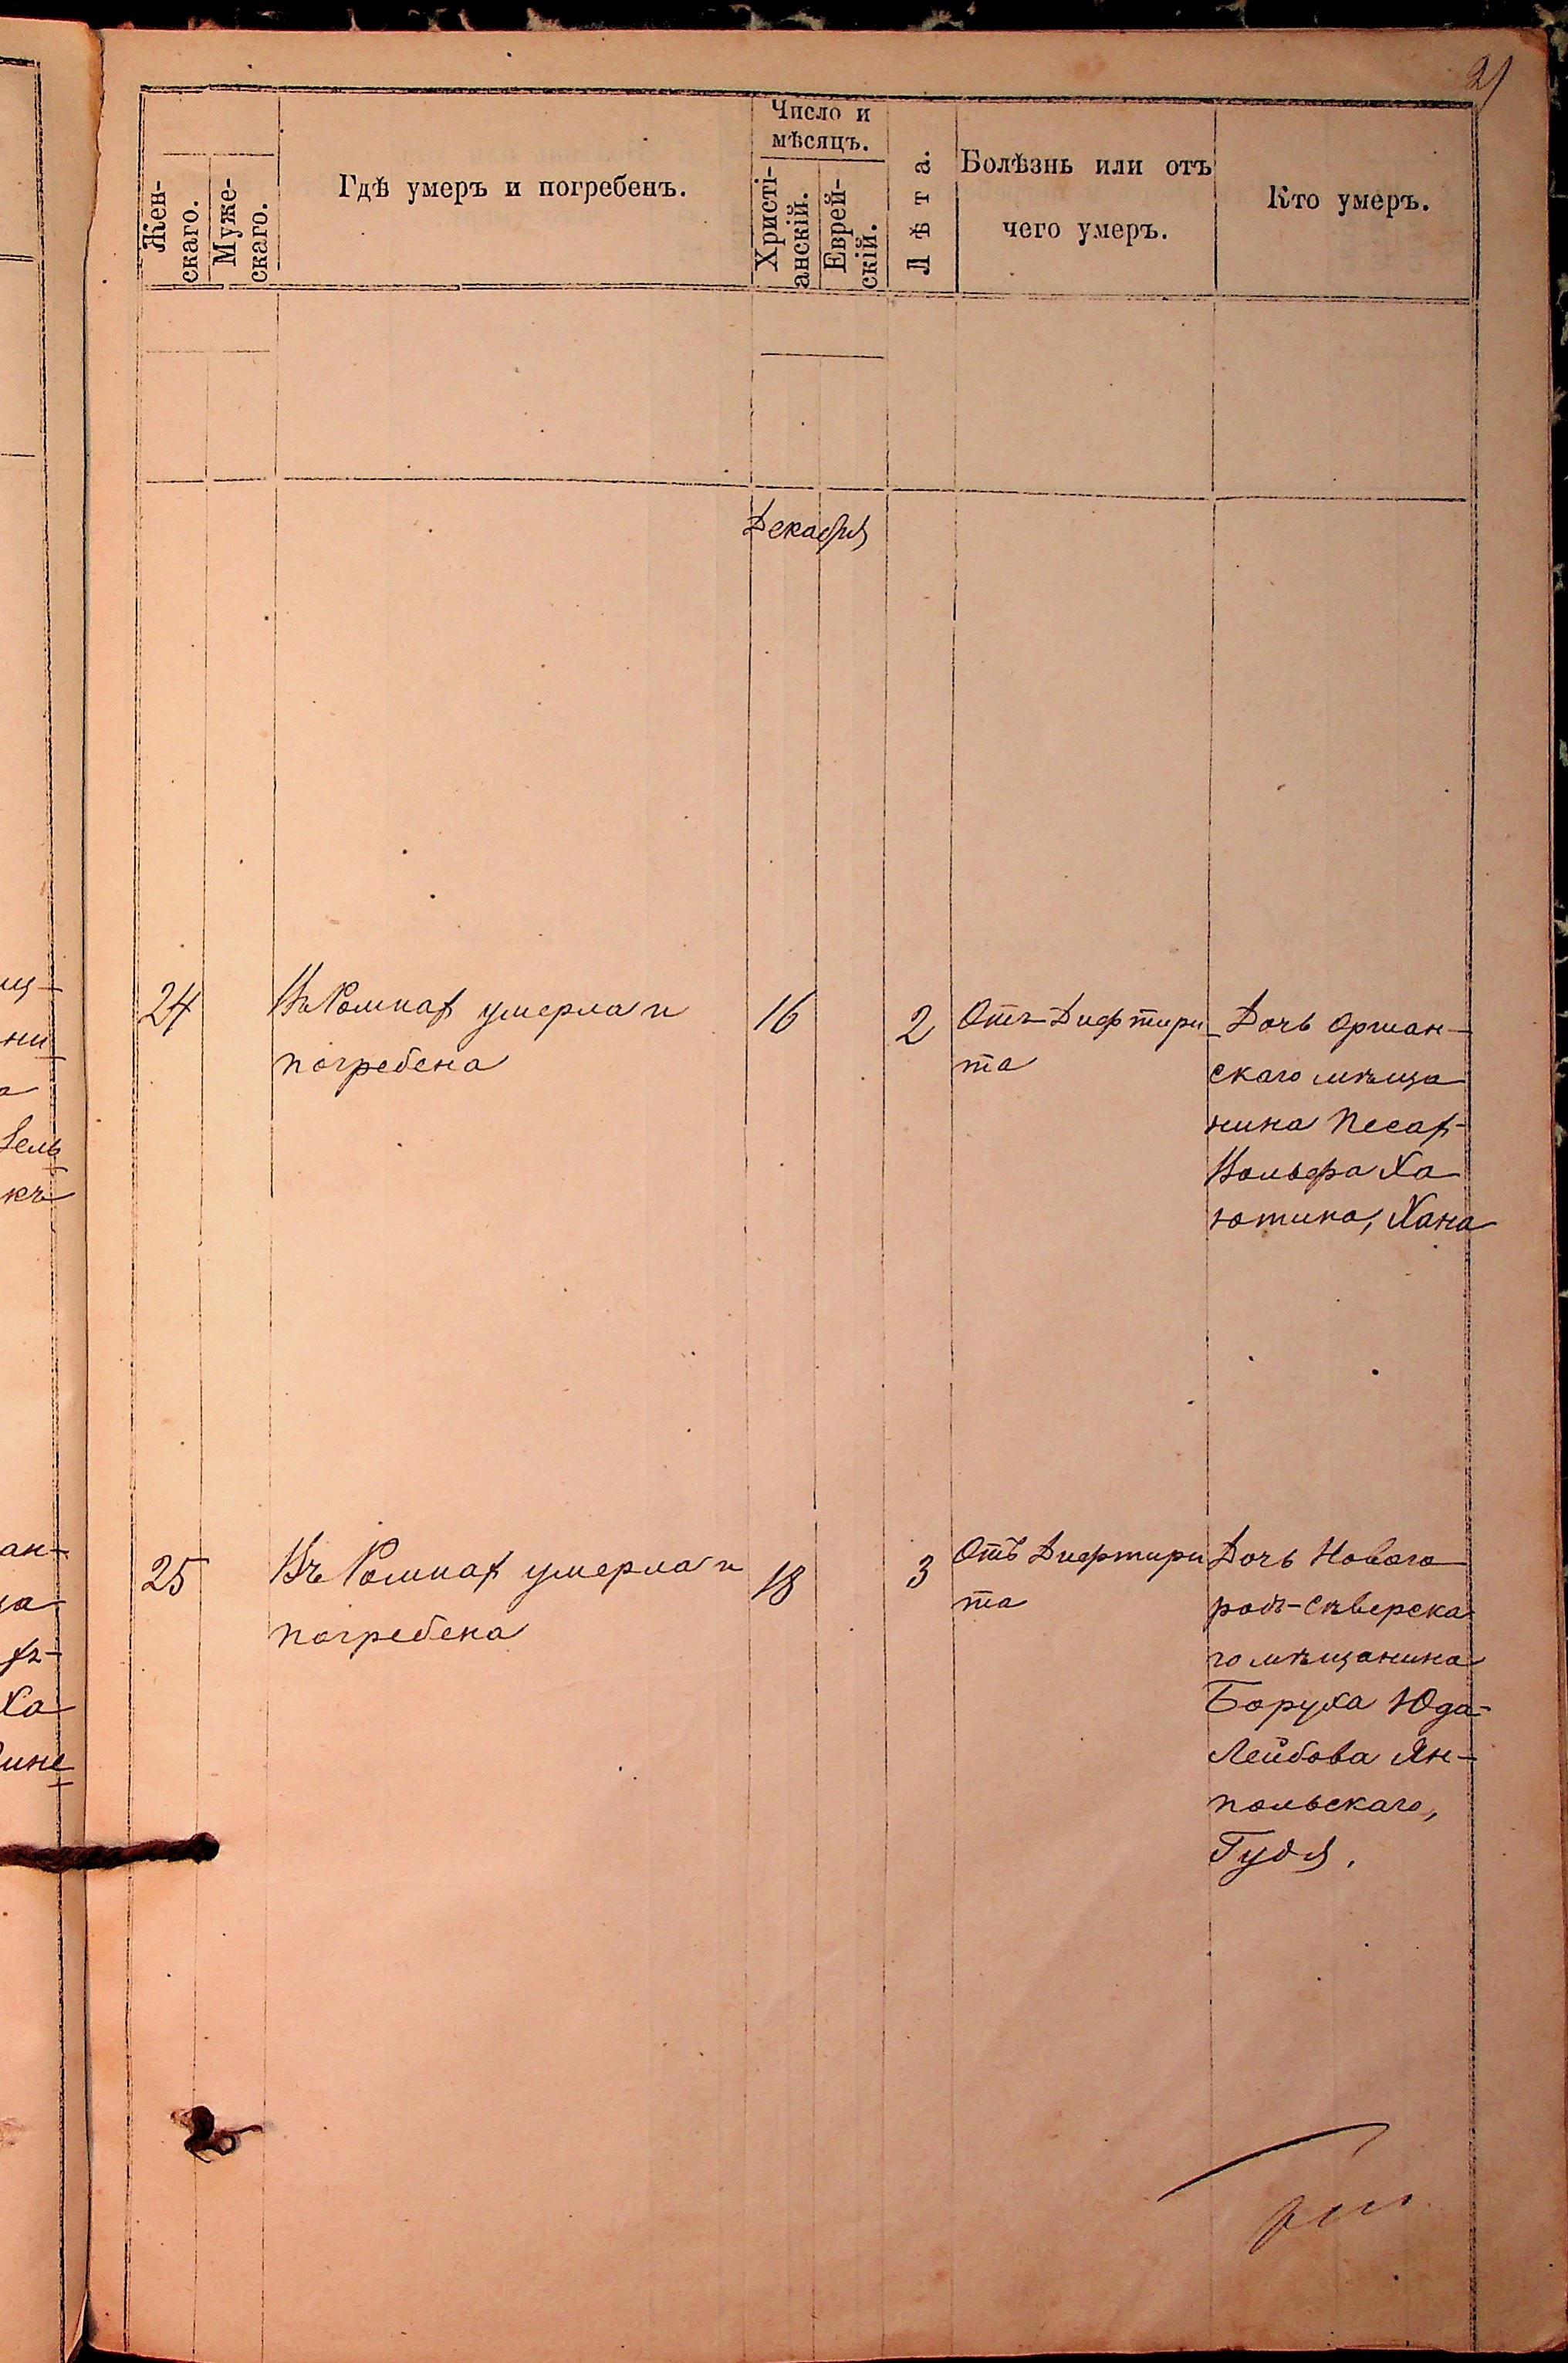 21
Жен-
скаго.
Муже-
скаго.
Гдѣ умеръ и погребенъ.
Число и
мѣсяцъ.
Христі-
анскій.
Еврей-
скій.
Лѣта.
Болѣзнь или отъ
чего умеръ.
Кто умеръ.
Декабря
24
Въ Ромнах умерла и
погребена
16
2
Отъ Дифтери
та
Дочь Оршан-
скаго мѣща
нина Песах-
Вольфа Ха
ютина, Хана
25
Въ Ромнах умерла и
погребена
18
3
Отъ Дифтери
та
Дочь Новаго
родъ-Сѣверска
го мѣщанина
Боруха Юда-
Лейбова Ян-
польскаго,
Гудя.